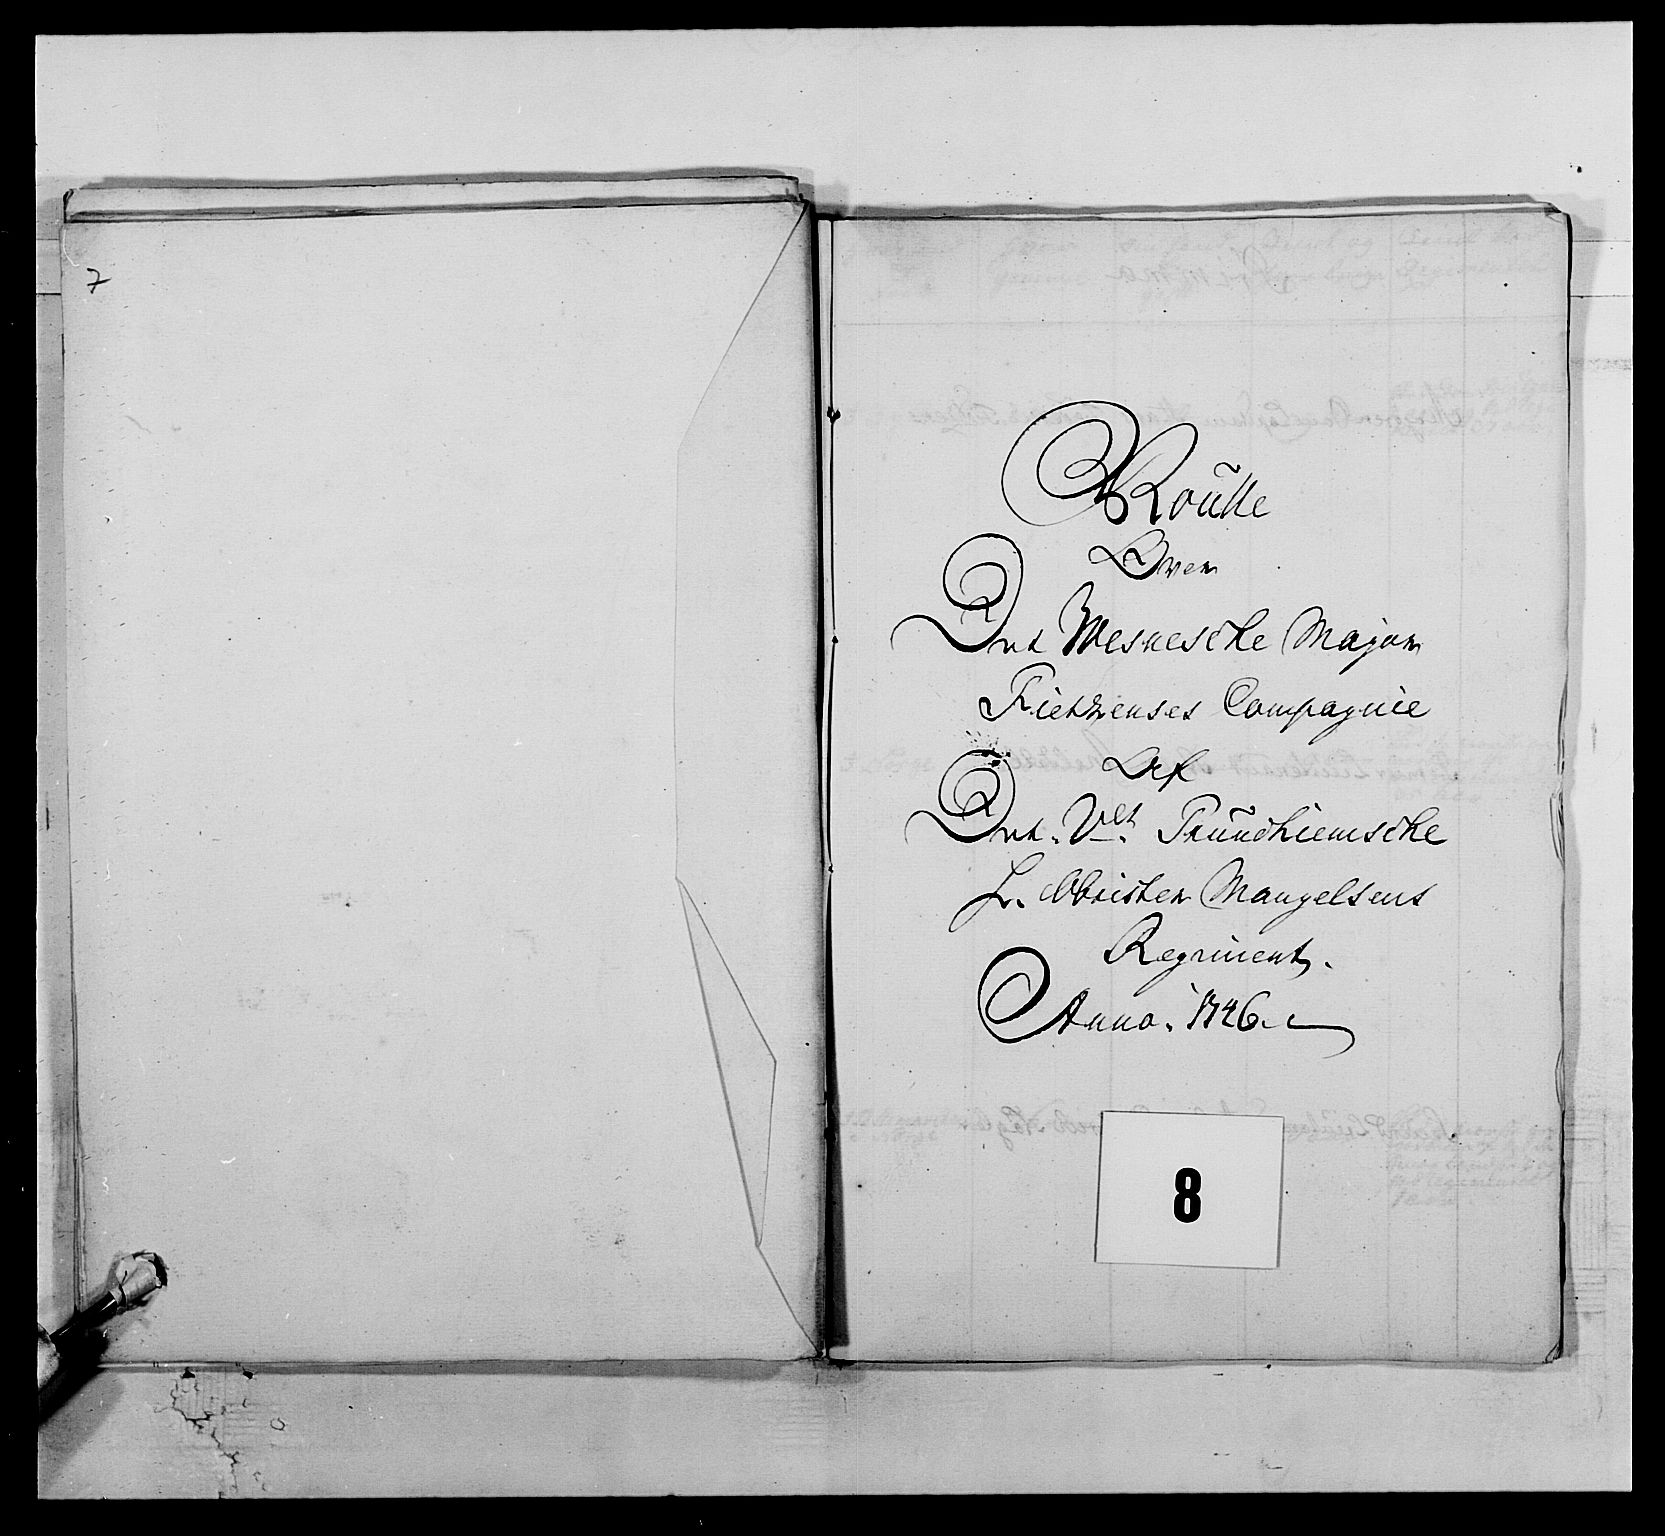 7
Roulle
Over
Det Wesnesche Major
Fietzenses Compagnie
Af
Det 2det Trundhiemsche
Hr. Obrister Mangelsens
Regiment.
Anno. 1746.
8